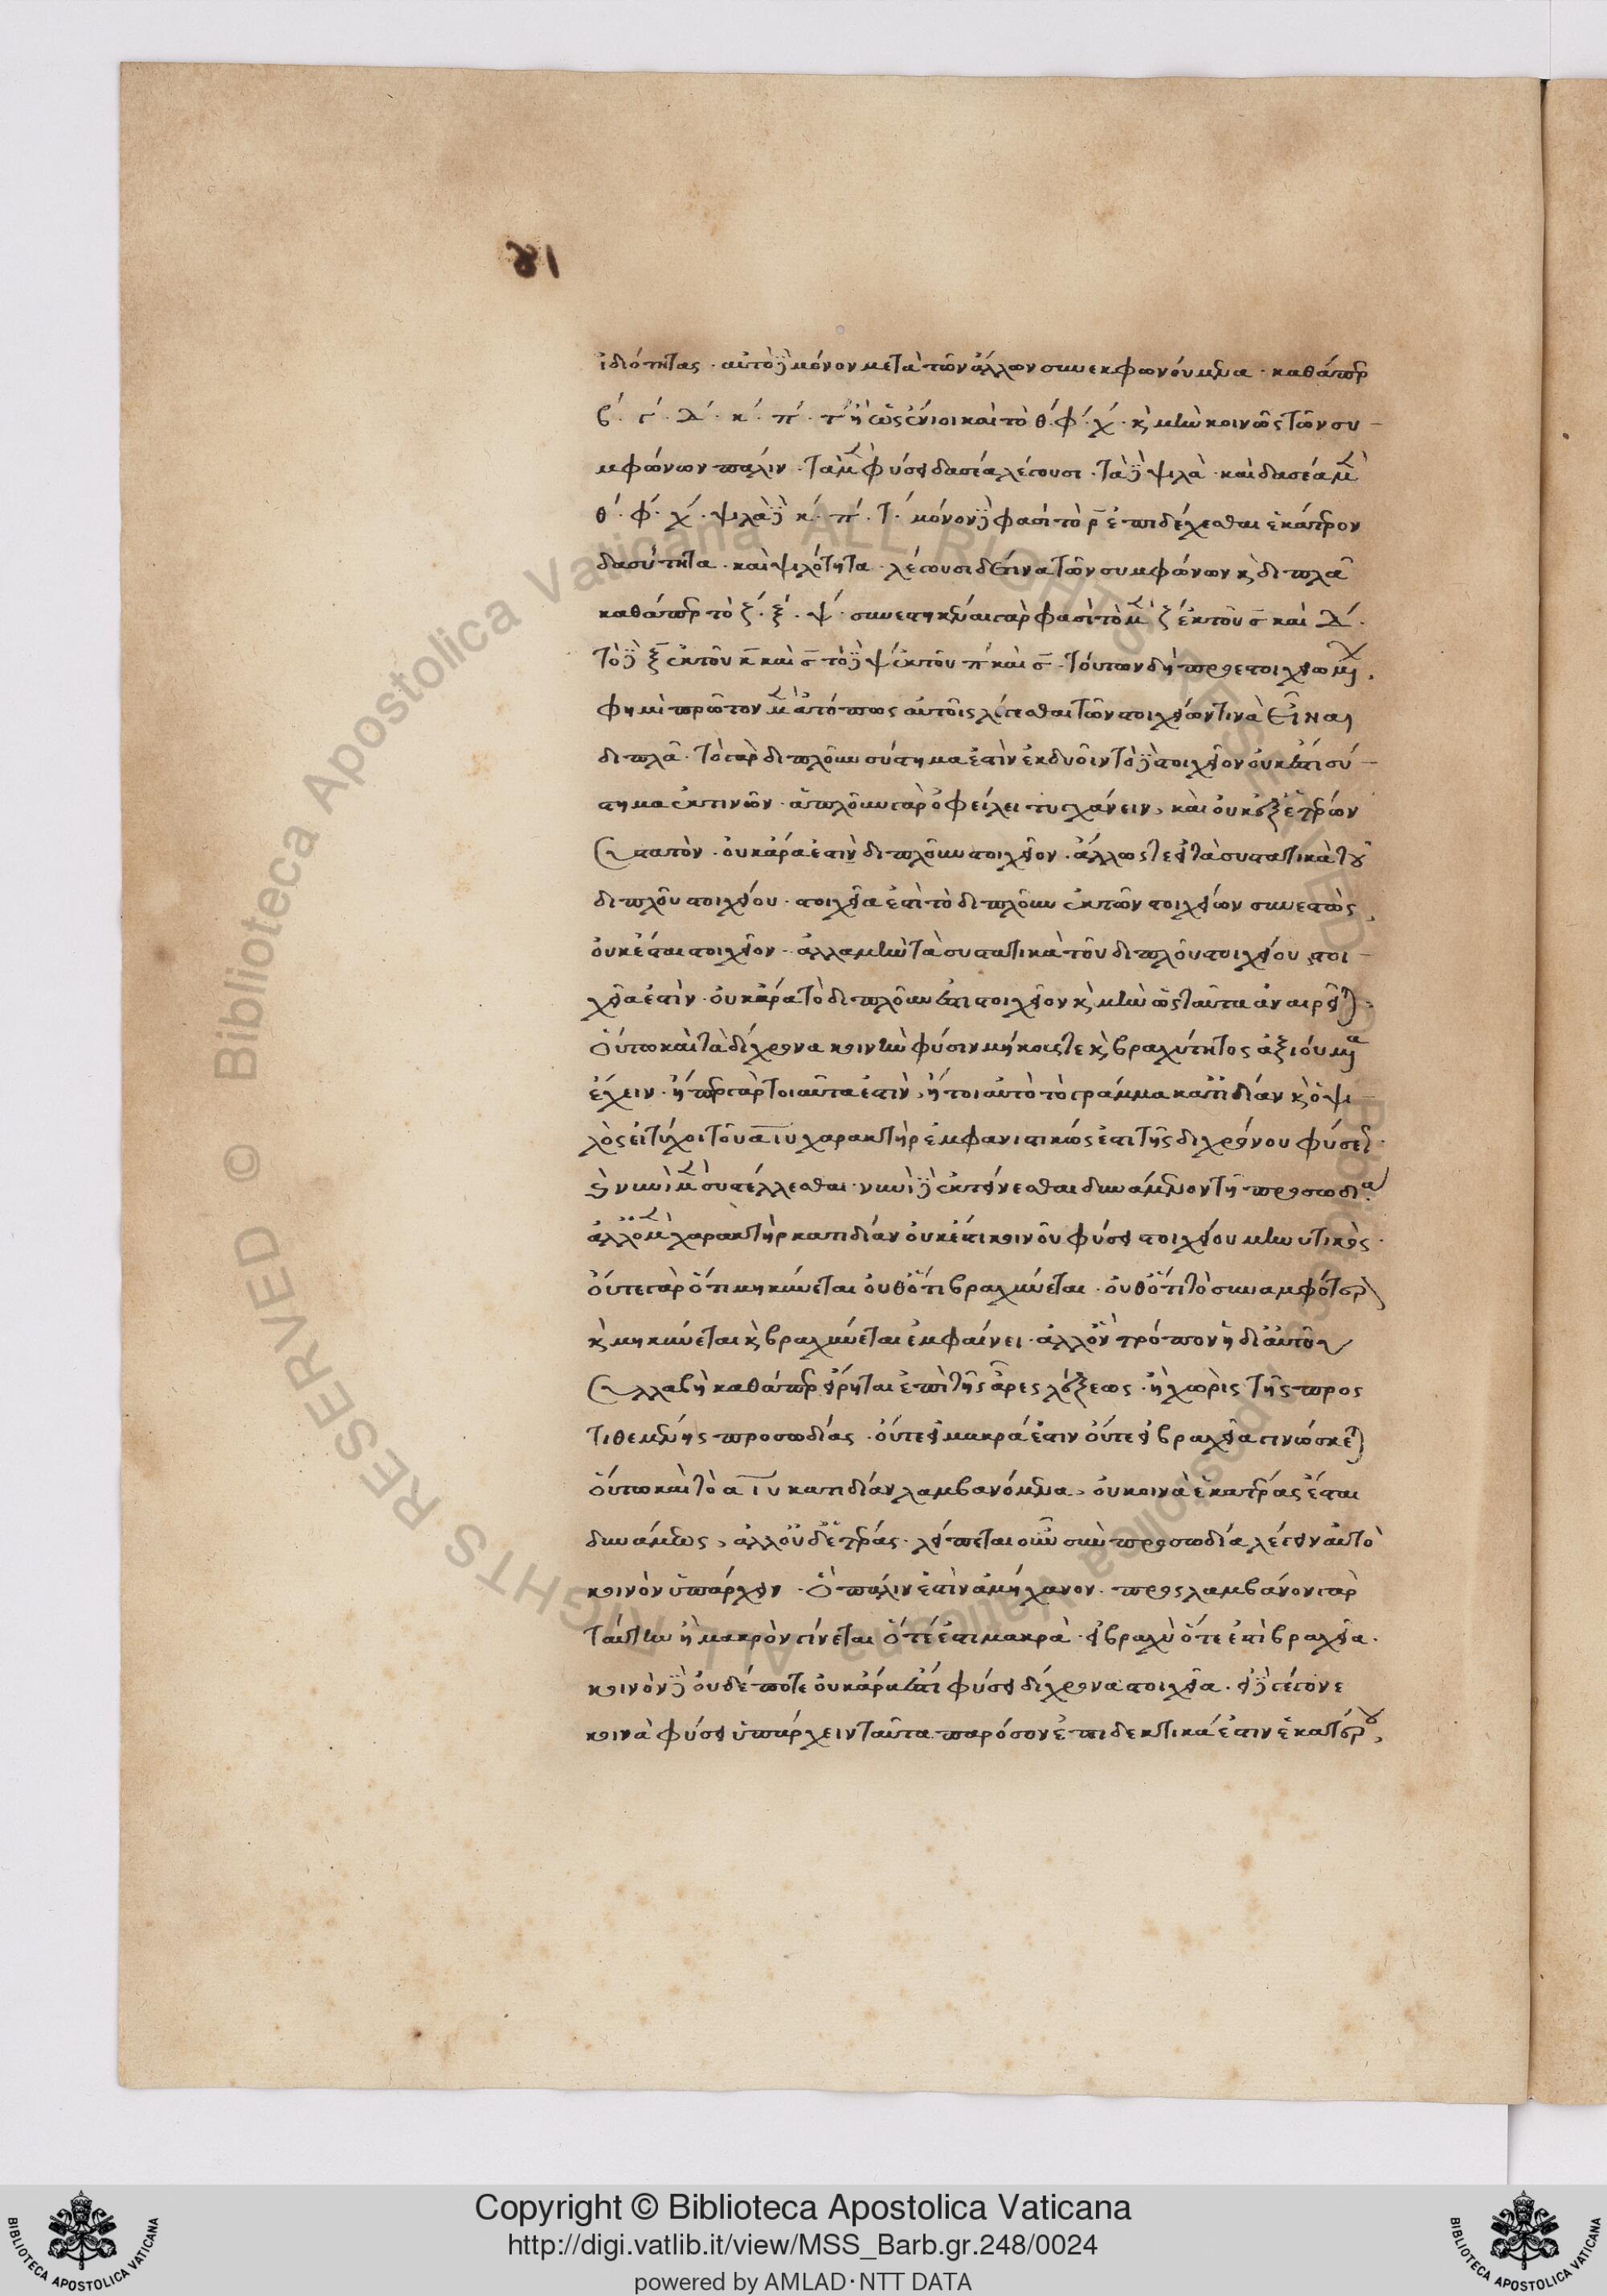 ἰδιότητας · αὐτὸ δὲ μόνον μετὰ τῶν ἄλλων συνεκφωνούμενα · καθάπερ
β´ · γ´ · δ´ · κ´ · π´ · τ´ ἢ ὡς ἔνιοι καὶ τὸ θ´ · φ´ · χ´ · καὶ μὴν κοινῶς τῶν συ-
μφώνων πάλιν · τὰ μὲν φύσει δασέα λέγουσι · τὰ δὲ ψιλὰ · καὶ δασέα μὲν
θ´ · φ´ · χ´ · ψιλὰ δὲ κ´ · π´ · τ´ · μόνον δὲ φασὶ τὸ ρ̄ ἐπιδέχεσθαι ἑκάτερον
δασύτητα · καὶ ψιλότητα · λέγουσι δέ τινα τῶν συμφώνων καὶ διπλᾶ
καθάπερ τὸ ζ´ · ξ´ · ψ´ · συνεστηκέναι γὰρ φασὶ τὸ μὲν ζ´ ἐκ τοῦ σ̄ καὶ δ´ ·
τὸ δὲ ξ̄ ἐκ τοῦ κ̄ καὶ σ̄ τὸ δὲ ψ´ ἐκ τοῦ π´ καὶ σ̄ · τούτων δὴ προεστοιχειωμένων ·
φημὶ πρῶτον μὲν ἀτόπως αὐτοῖς λέγεσθαι τῶν στοιχείων τινὰ εἶναι
διπλᾶ · τὸ γὰρ διπλοῦν σύστημα ἐστὶν ἐκ δυοῖν τὸ δὲ στοιχεῖον οὐκ ἔστι σύ-
στημα ἐκ τινῶν · ἁπλοῦν γὰρ ὀφείλει τυγχάνειν, καὶ οὐκ ἐξ ἑτέρων
συστατὸν · οὐκ ἄρα ἐστὶν διπλοῦν στοιχεῖον · ἄλλως τε εἰ τὰ συστατικὰ τοῦ
διπλοῦ στοιχείου · στοιχεῖα ἐστὶ τὸ διπλοῦν ἐκ τῶν στοιχείων συνεστὼς,
οὐκ ἔσται στοιχεῖον · ἀλλὰ μὴν τὰ συστατικὰ τοῦ διπλοῦ στοιχείου, στοι-
χεῖα ἐστὶν · οὐκ ἄρα τὸ διπλοῦν ἔστι στοιχεῖον καὶ μὴν ὡς ταῦτα ἀναιρεῖται,
οὕτω καὶ τὰ δίχρονα κοινὴν φύσιν μήκους τε καὶ βραχύτητος ἀξιούμενα
ἔχειν · εἴπερ γὰρ τοιαῦτα ἐστὶν, ἤτοι αὐτὸ τὸ γράμμα κατ' ἰδίαν καὶ ὁ ψι-
λὸς εἰ τύχοι τοῦ α ι υ χαρακτὴρ ἐμφανιστικός ἐστι τῆς διχρόνου φύσεως ·
νυνὶ μὲν συστέλλεσθαι · νυνὶ δὲ ἐκτείνεσθαι δυνάμενον τῇ προσωδίᾳ
ἀλλ' ὁ μὲν χαρακτὴρ κατ' ἰδίαν οὐκ ἔστι κοινοῦ φύσει στοιχείου μηνυτικὸς ·
οὔτε γὰρ ὅτι μηκύνεται οὐθ' ὅτι βραχύνεται · οὐθ' ὅτι τὸ συναμφότερον
καὶ μηκύνεται καὶ βραχύνεται ἐμφαίνει · ἀλλ' ὃν τρόπον ἡ δι' αὐτοῦ
συλλαβὴ καθάπερ εἴρηται ἐπὶ τῆς ἆρες λέξεως · ἡ χωρὶς τῆς προσ
τιθεμένης προσωδίας · οὔτε εἰ μακρά ἐστιν οὔτε εἰ βραχεῖα γινώσκεται
οὕτω καὶ τὸ α ι υ κατ' ἰδίαν λαμβανόμενα, οὐ κοινὰ ἑκατέρας ἔσται
δυνάμεως, ἀλλ' οὐδ' ἑτέρας · λείπεται οὖν σὺν προσωδία λέγειν αὐτὸ
κοινὸν ὑπάρχειν · ὃ πάλιν ἐστὶν ἀμήχανον · προσλαμβάνον γὰρ
ταύτην ἢ μακρὸν γίνεται ὅτέ ἐστι μακρὰ · εἰ βραχὺ ὅτε ἐστὶ βραχεῖα ·
κοινὸν δὲ οὐδέποτε οὐκ ἄρα ἔστι φύσει δίχρονα στοιχεῖα · εἰ δὲ γέγονε
κοινὰ φύσει ὑπάρχειν ταῦτα παρόσον ἐπιδεκτικά ἐστιν ἑκατέρου,
© Biblioteca Apostolica Vaticana ALL RIGHTS RESERVED
Copyright © Biblioteca Apostolica Vaticana
http://digi.vatlib.it/view/MSS_Barb.gr.248/0024
powered by AMLAD·NTT DATA
BIBLIOTECA APOSTOLICA VATICANA
BIBLIOTECA APOSTOLICA VATICANA